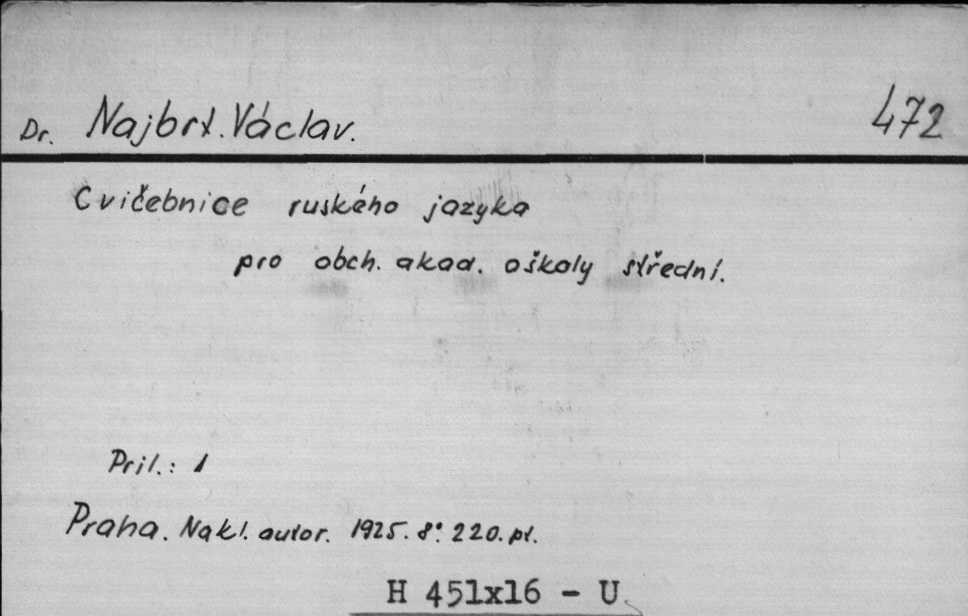 Dr. Najbrt. Václav. 472
Cvičebnice ruského jazyka
pro obch. akad. oškoly střední.
Pril.: 1
Praha. Nakl. autor. 1925. 8°. 220. pt.
H 451x16 - U